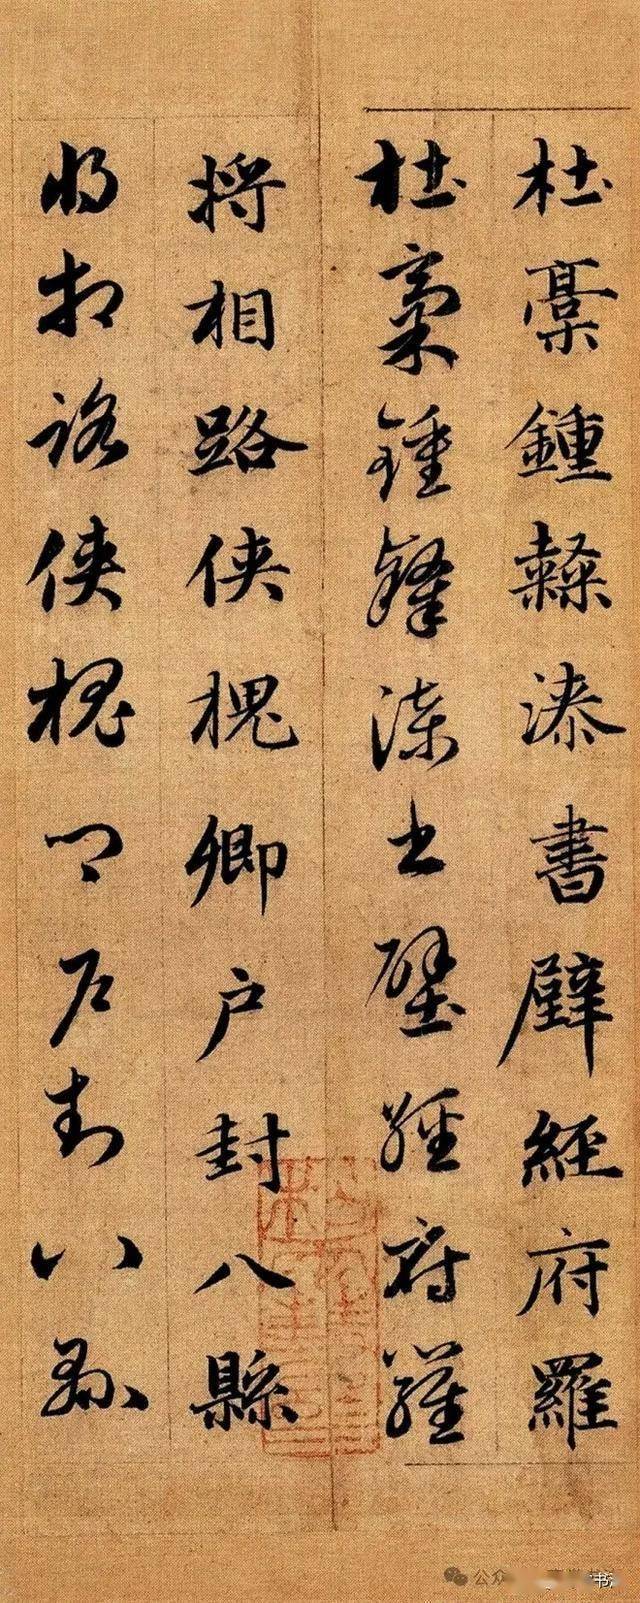 杜槀鍾隸漆書壁經府羅
杜槀鍾隸漆書壁經府羅
將相路俠槐卿户封八縣
將相路俠槐卿户封八縣
公众 书